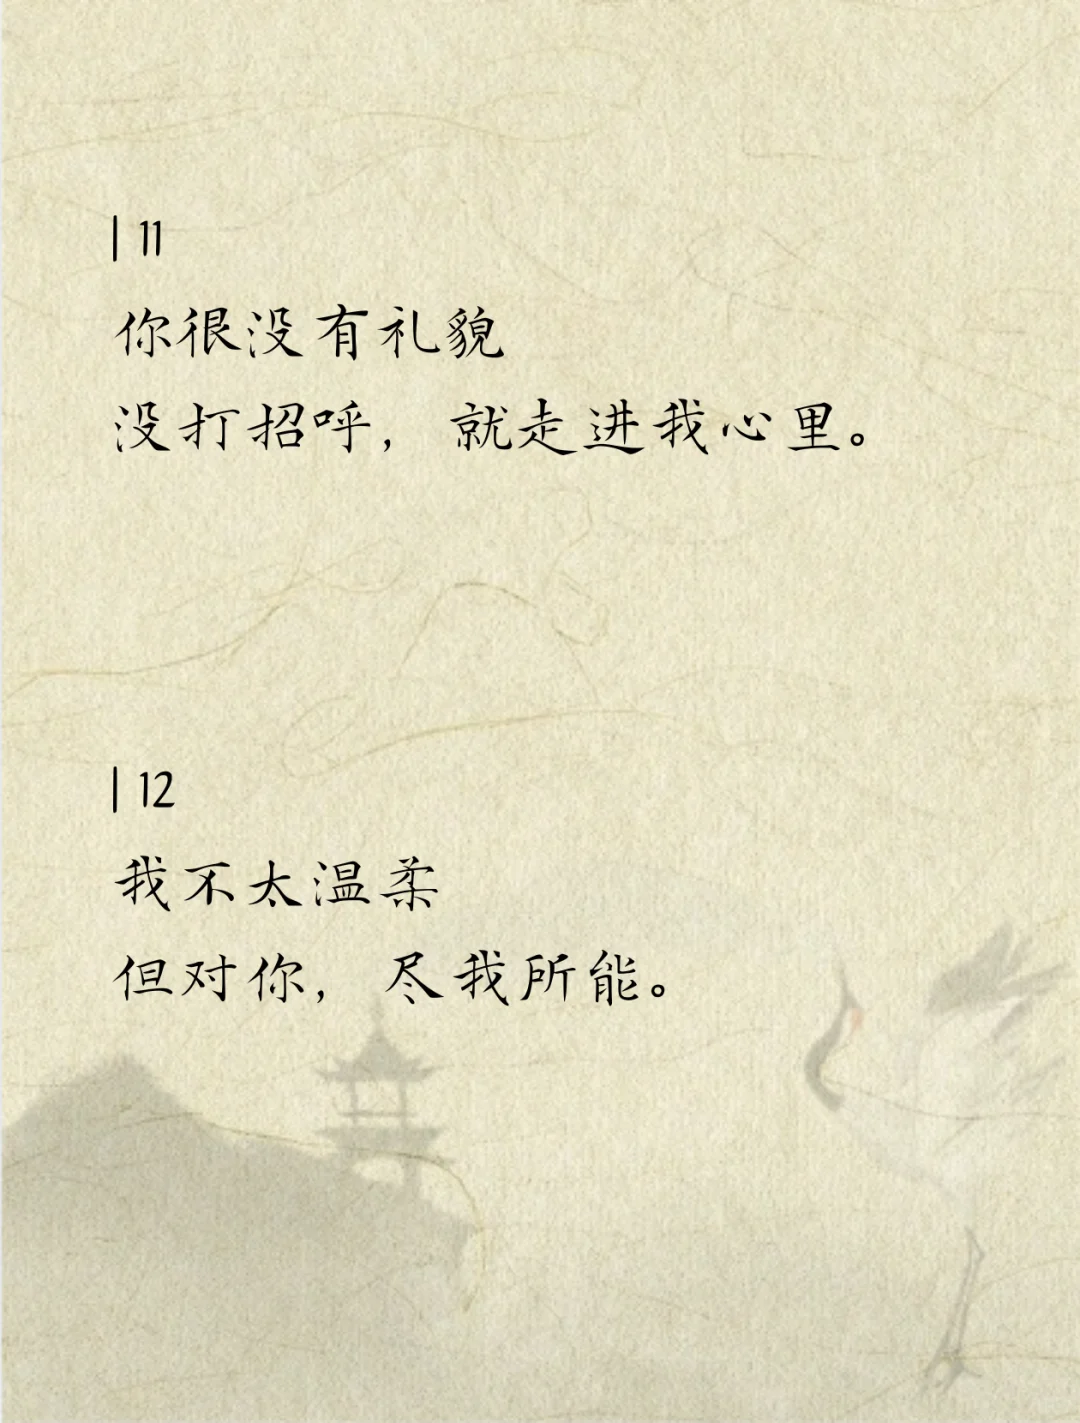 | 11
你很没有礼貌
没打招呼，就走进我心里。
| 12
我不太温柔
但对你，尽我所能。